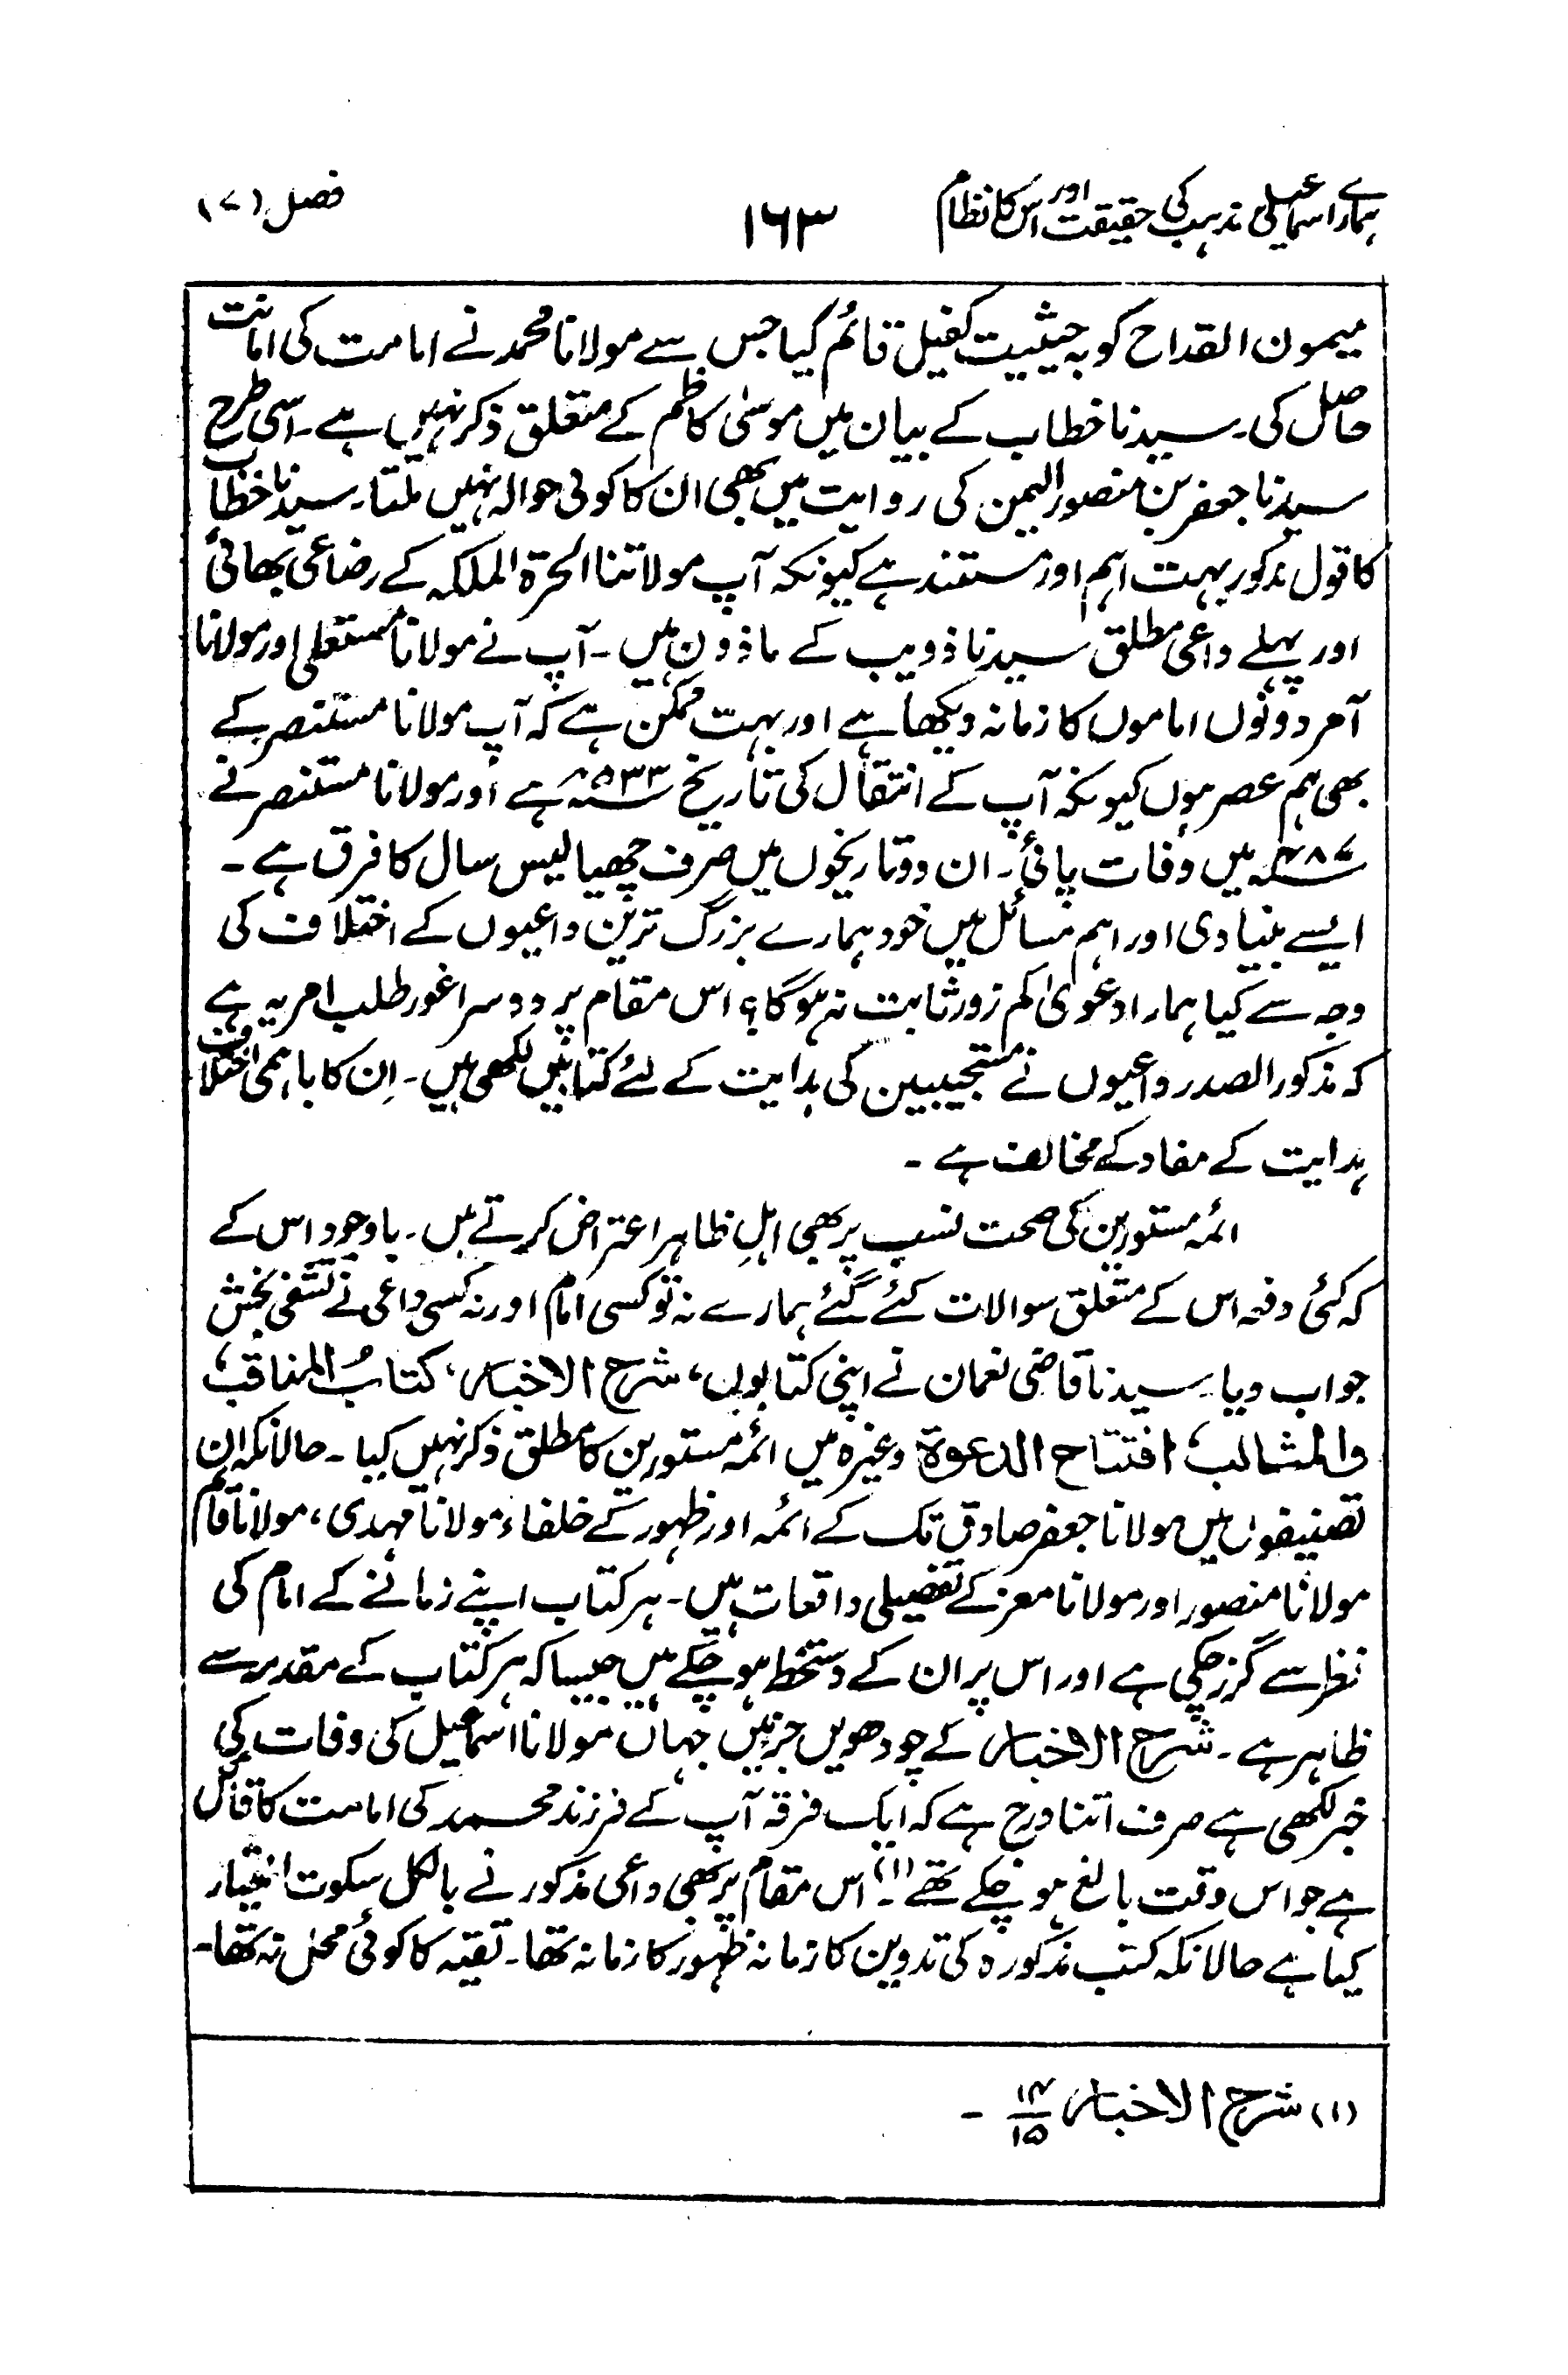 ہمارے اسماعیلی مذہب کی حقیقت اور اس کا نظام ۱۶۳ فصل (۷)
میمون القداح کو بہ حیثیت کفیل قائم کیا جس سے مولانا محمد نے امامت کی امانت
حاصل کی۔ سیدنا خطاب کے بیان میں موسیٰ کاظم کے متعلق ذکر نہیں ہے۔ اسی طرح
سیدنا جعفر بن منصور الیمن کی روایت میں بھی ان کا کوئی حوالہ نہیں ملتا۔ سیدنا خطاب
کا قول مذکور بہت اہم اور مستند ہے کیونکہ آپ مولاتنا الحرۃ الملکہ کے رضاعی بھائی
اور پہلے داعی مطلق سیدنا ذویب کے ماذون ہیں۔ آپ نے مولانا مستعلی اور مولانا
آمر دونوں اماموں کا زمانہ دیکھا ہے اور بہت ممکن ہے کہ آپ مولانا مستنصر کے
بھی ہم عصر ہوں کیونکہ آپ کے انتقال کی تاریخ ۵۳۳ھ ہے اور مولانا مستنصر نے
۴۸۷ھ میں وفات پائی۔ ان دو تاریخوں میں صرف چھیالیس سال کا فرق ہے۔
ایسے بنیادی اور اہم مسائل میں خود ہمارے بزرگ ترین داعیوں کے اختلاف کی
وجہ سے کیا ہمارا دعویٰ کم زور ثابت نہ ہوگا؟ اس مقام پر دوسرا غور طلب امر یہ ہے
کہ مذکور الصدر داعیوں نے مستجیبین کی ہدایت کے لئے کتابیں لکھی ہیں۔ اِن کا باہمی اختلاف
ہدایت کے مفاد کے مخالف ہے۔
ائمہ مستورین کی صحت نسب پر بھی اہلِ ظاہر اعتراض کرتے ہیں۔ باوجود اس کے
کہ کئی دفعہ اس کے متعلق سوالات کئے گئے ہمارے نہ تو کسی امام اور نہ کسی داعی نے تشفی بخش
جواب دیا۔ سیدنا قاضی نعمان نے اپنی کتابوں، شرح الاخبار، کتابُ المناقب
والمثالب، افتتاح الدعوة وغیرہ میں ائمہ مستورین کا مطلق ذکر نہیں کیا۔ حالانکہ ان
تصنیفوں میں مولانا جعفر صادق تک کے ائمہ اور ظہور کے خلفاء مولانا مہدی، مولانا قائم
مولانا منصور اور مولانا معز کے تفصیلی واقعات ہیں۔ ہر کتاب اپنے زمانے کے امام کی
نظر سے گزر چکی ہے اور اس پر ان کے دستخط ہو چکے ہیں جیسا کہ ہر کتاب کے مقدمہ سے
ظاہر ہے۔ شرح الاخبار کے چودھویں جز میں جہاں مولانا اسماعیل کی وفات کی
خبر لکھی ہے صرف اتنا درج ہے کہ ایک فرقہ آپ کے فرزند محمد کی امامت کا قائل
ہے جو اس وقت بالغ ہو چکے تھے (۱)۔ اس مقام پر بھی داعی مذکور نے بالکل سکوت اختیار
کیا ہے حالانکہ کتب مذکورہ کی تدوین کا زمانہ ظہور کا زمانہ تھا۔ تقیہ کا کوئی محل نہ تھا۔
(۱) شرح الاخبار ۱۴/۱۵ ۔